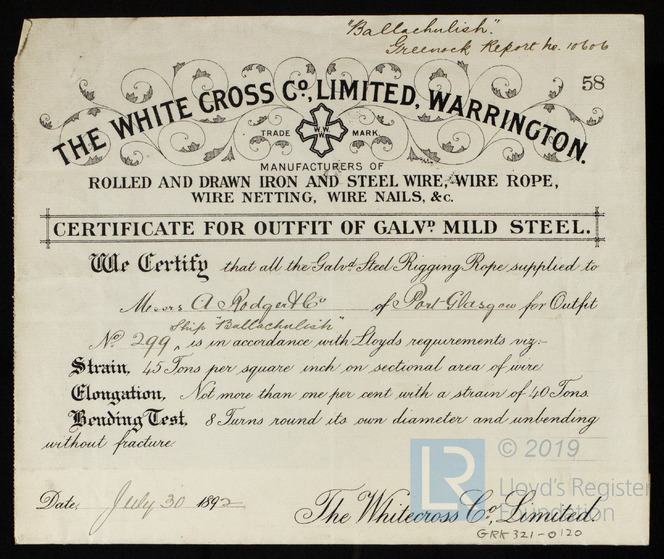 "Ballachulish".
Greenock Report No. 10606
58
THE WHITE CROSS Cº, LIMITED, WARRINGTON.
TRADE W.W MARK
MANUFACTURERS OF
ROLLED AND DRAWN IRON AND STEEL WIRE, WIRE ROPE,
WIRE NETTING, WIRE NAILS, &c.
CERTIFICATE FOR OUTFIT OF GALVᴰ MILD STEEL.
We Certify that all the Galvᵈ Steel Rigging Rope supplied to
Messrs A Rodger & Co of Port Glasgow for Outfit
Ship "Ballachulish"
Nº 299 ^ is in accordance with Lloyds requirements viz:-
Strain, 45 Tons per square inch on sectional area of wire
Elongation, Not more than one per cent with a strain of 40 Tons.
Bending Test, 8 Turns round its own diameter and unbending
without fracture.
LR © 2019
Lloyd's Register
Foundation
Date, July 30 1892
The Whitecross Cº, Limited.
GRK321-0120